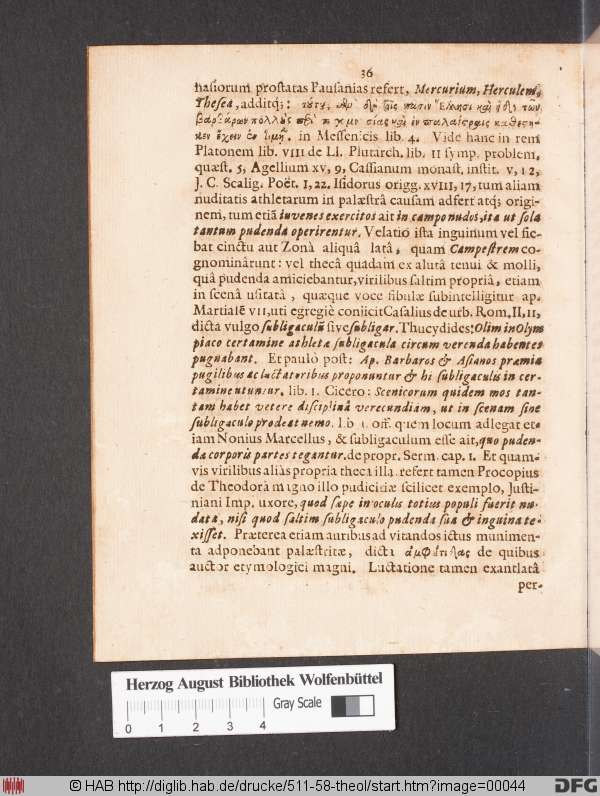 36
nasiorum prostatas Pausanias refert, Mercurium, Herculem,
Thesea, additq;:
in Messenicis lib. 4. Vide hanc in rem
Platonem lib. VIII de Ll. Plutarch. lib. II symp. problem.
quæst. 5, Agellium xv, 9, Cassianum monast. instit. v, 12,
J. C. Scalig. Poët. I, 22. Isidorus origg. XVIII, 17, tum aliam
nuditatis athletarum in palæstrâ causam adfert atq; origi-
nem, tum etiã iuvenes exercitos ait in campo nudos, ita ut sola
tantum pudenda operirentur. Velatio ista inguinum vel fie-
bat cinctu aut Zonâ aliquâ latâ, quam Campestrem co-
gnominârunt: vel thecâ quâdam ex alutâ tenui & molli,
quâ pudenda amiciebantur, virilibus saltim propriâ, etiam
in scenâ usitatâ, quæque voce fibulæ subintelligitur ap.
Martialẽ VII, uti egregiè coniicit Casalius de urb. Rom. II, 11,
dicta vulgo subligaculũ sive subligar. Thucydides: Olim in Olym
piaco certamine athletæ subligacula circum verenda habentes
pugnabant. Et paulò post: Ap. Barbaros & Asianos præmia
pugilibus ac luctatoribus proponuntur & hi subligaculis in cer-
tamine utuntur. lib. I. Cicero: Scenicorum quidem mos tan-
tam habet vetere disciplinâ verecundiam, ut in scenam sine
subligaculo prodeat nemo. lib. I. off. quem locum adlegat et-
iam Nonius Marcellus, & subligaculum esse ait, quo puden-
da corporis partes tegantur. de propr. Serm. cap. I. Et quam-
vis virilibus aliàs propria theca illa. refert tamen Procopius
de Theodorâ magno illo pudicitiæ scilicet exemplo, Justi-
niani Imp. uxore, quod sæpe in oculis totius populi fuerit nu-
data, nisi quod saltim subligaculo pudenda sua & inguina te-
xisset. Præterea etiam auribus ad vitandos ictus munimen-
ta adponebant palæstritæ, dicta ἀμφώτιδας de quibus
auctor etymologici magni. Luctatione tamen exantlatâ
per-
Herzog August Bibliothek Wolfenbüttel
Gray Scale
0 1 2 3 4
© HAB http://diglib.hab.de/drucke/511-58-theol/start.htm?image=00044
DFG